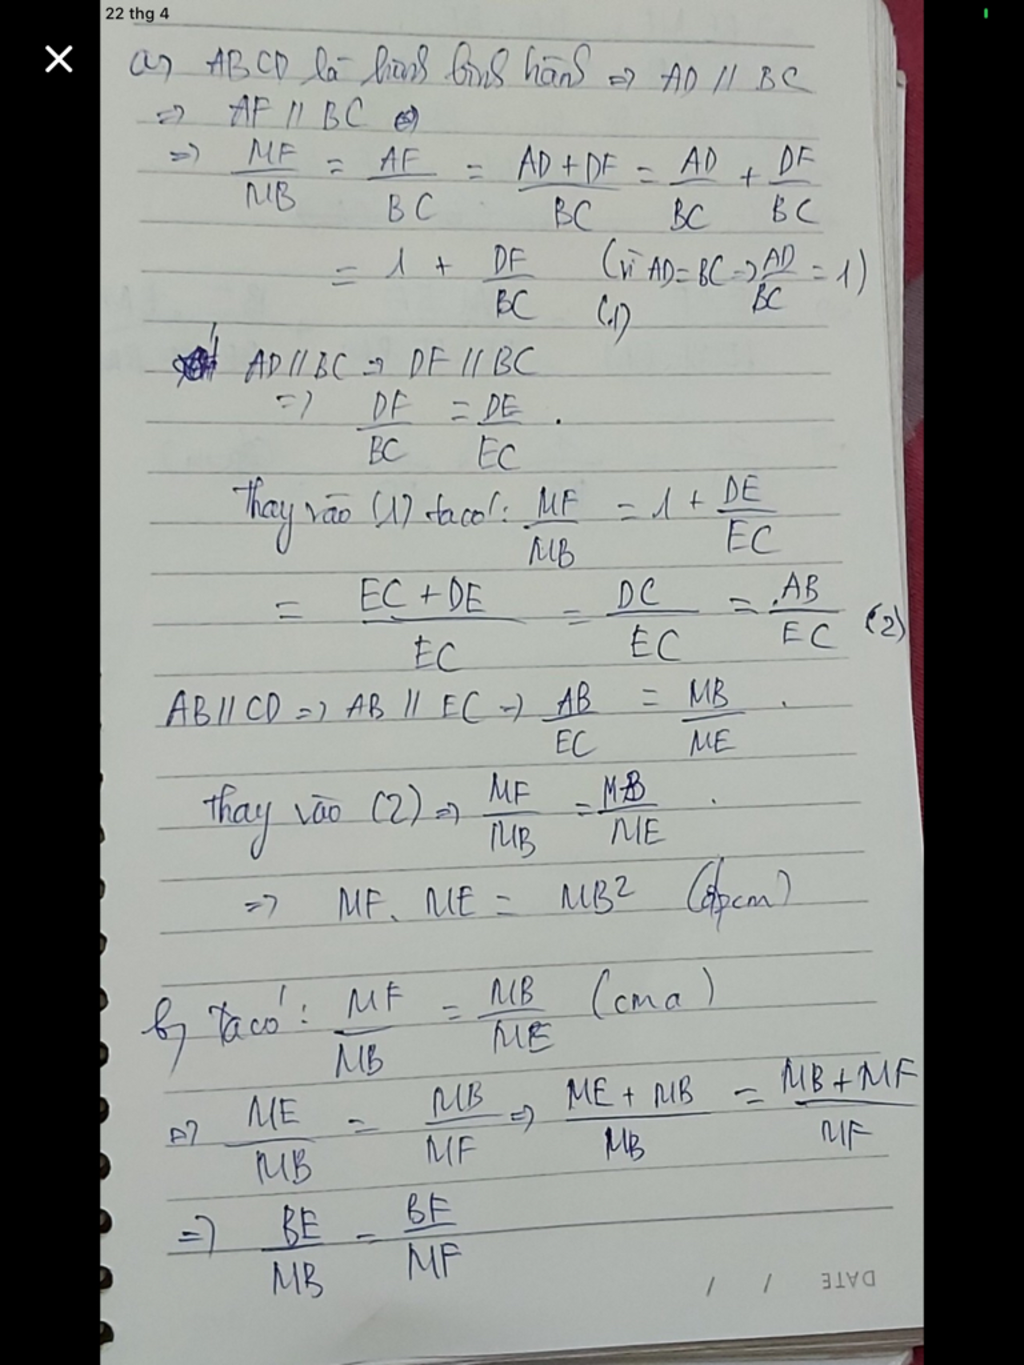 22 thg 4
a, ABCD là hình bình hành => AD // BC
=> AF // BC
=> MF/MB = AF/BC = AD + DF/BC = AD/BC + DF/BC
= 1 + DF/BC (vì AD = BC => AD/BC = 1) (1)
AD // BC => DF // BC
=> DF/BC = DE/EC .
Thay vào (1) ta có: MF/MB = 1 + DE/EC
= EC + DE/EC = DC/EC = AB/EC (2)
AB // CD => AB // EC => AB/EC = MB/ME .
Thay vào (2) => MF/MB = MB/ME .
=> MF . ME = MB² (đpcm)
b, Ta có: MF/MB = MB/ME (cm a)
=> ME/MB = MB/MF => ME + MB/MB = MB + MF/MF
=> BE/MB = BF/MF
DATE / /